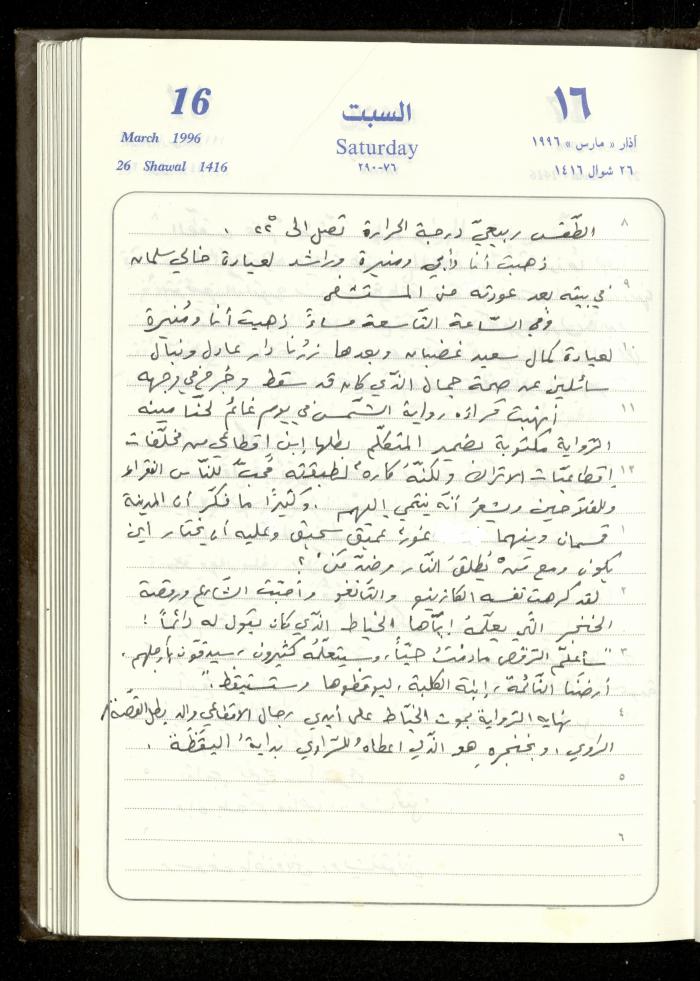 16
March 1996
26 Shawal 1416
السبت
Saturday
٧٦-٢٩٠
١٦
آذار « مارس » ١٩٩٦
٢٦ شوال ١٤١٦
٨
الطّقس ربيعيّ درجة الحرارة تصل الى ٢٢° .
ذهبت أنا وأبي ومنيرة وراشد لعيادة خالي سلمان
٩
في بيته بعد عودته من المستشفى
وفي السّاعة التّاسعة مساءً ذهبت أنا ومُنيرة
١٠
لعيادة كمال سعيد غضبان وبعدها زُرْنا دار عادل ونبال
سائلين عن صحة جمال الذّي كان قد سقط وجُرح في وجهه
١١
أنهيت قراءة رواية الشّمس في يوم غائم لحنّا مينه
الرّواية مكتوبة بضمير المتكلّم بطلها إبن إقطاعي من مخلّفات
١٢
إقطاعيّات الاتراك ولكنّهُ كاره لطبقته مُحبٌّ للنّاس الفقراء
وللفلاّحين ويشعرُ أنّه ينتمي إليهم . وكثيرًا ما فكّر أن المدينة
١
قسمان وبينهما غور عميق سحيق وعليه أن يختار أين
يكون ومع مَنْ يُطلقُ النّار وضدّ مَنْ ؟
٢
لقد كرهت نفسه الكازينو والتّانغو وأحبّت الشّارع ورقصة
الخنجر التّي يعلّمهُ إيّاها الخياط الذّي كان يقول له دائماً :
٣
" سأعلّم الرّقص مادمتُ حيّاً، وسيتعلّمهُ كثيرون، سيدقّون بأرجلهم،
أرضَنا النّائمة، إبنة الكلبة، ليوقظوها وستستيقظ."
٤
نهايه الرّواية بموت الخيّاط على أيدي رجال الاقطاعي والد بطل القصّة/
الرّاوي، وبخنجره هو الذّي اعطاهُ للرّاوي بدايةُ اليَقَظَة .
٥
٦